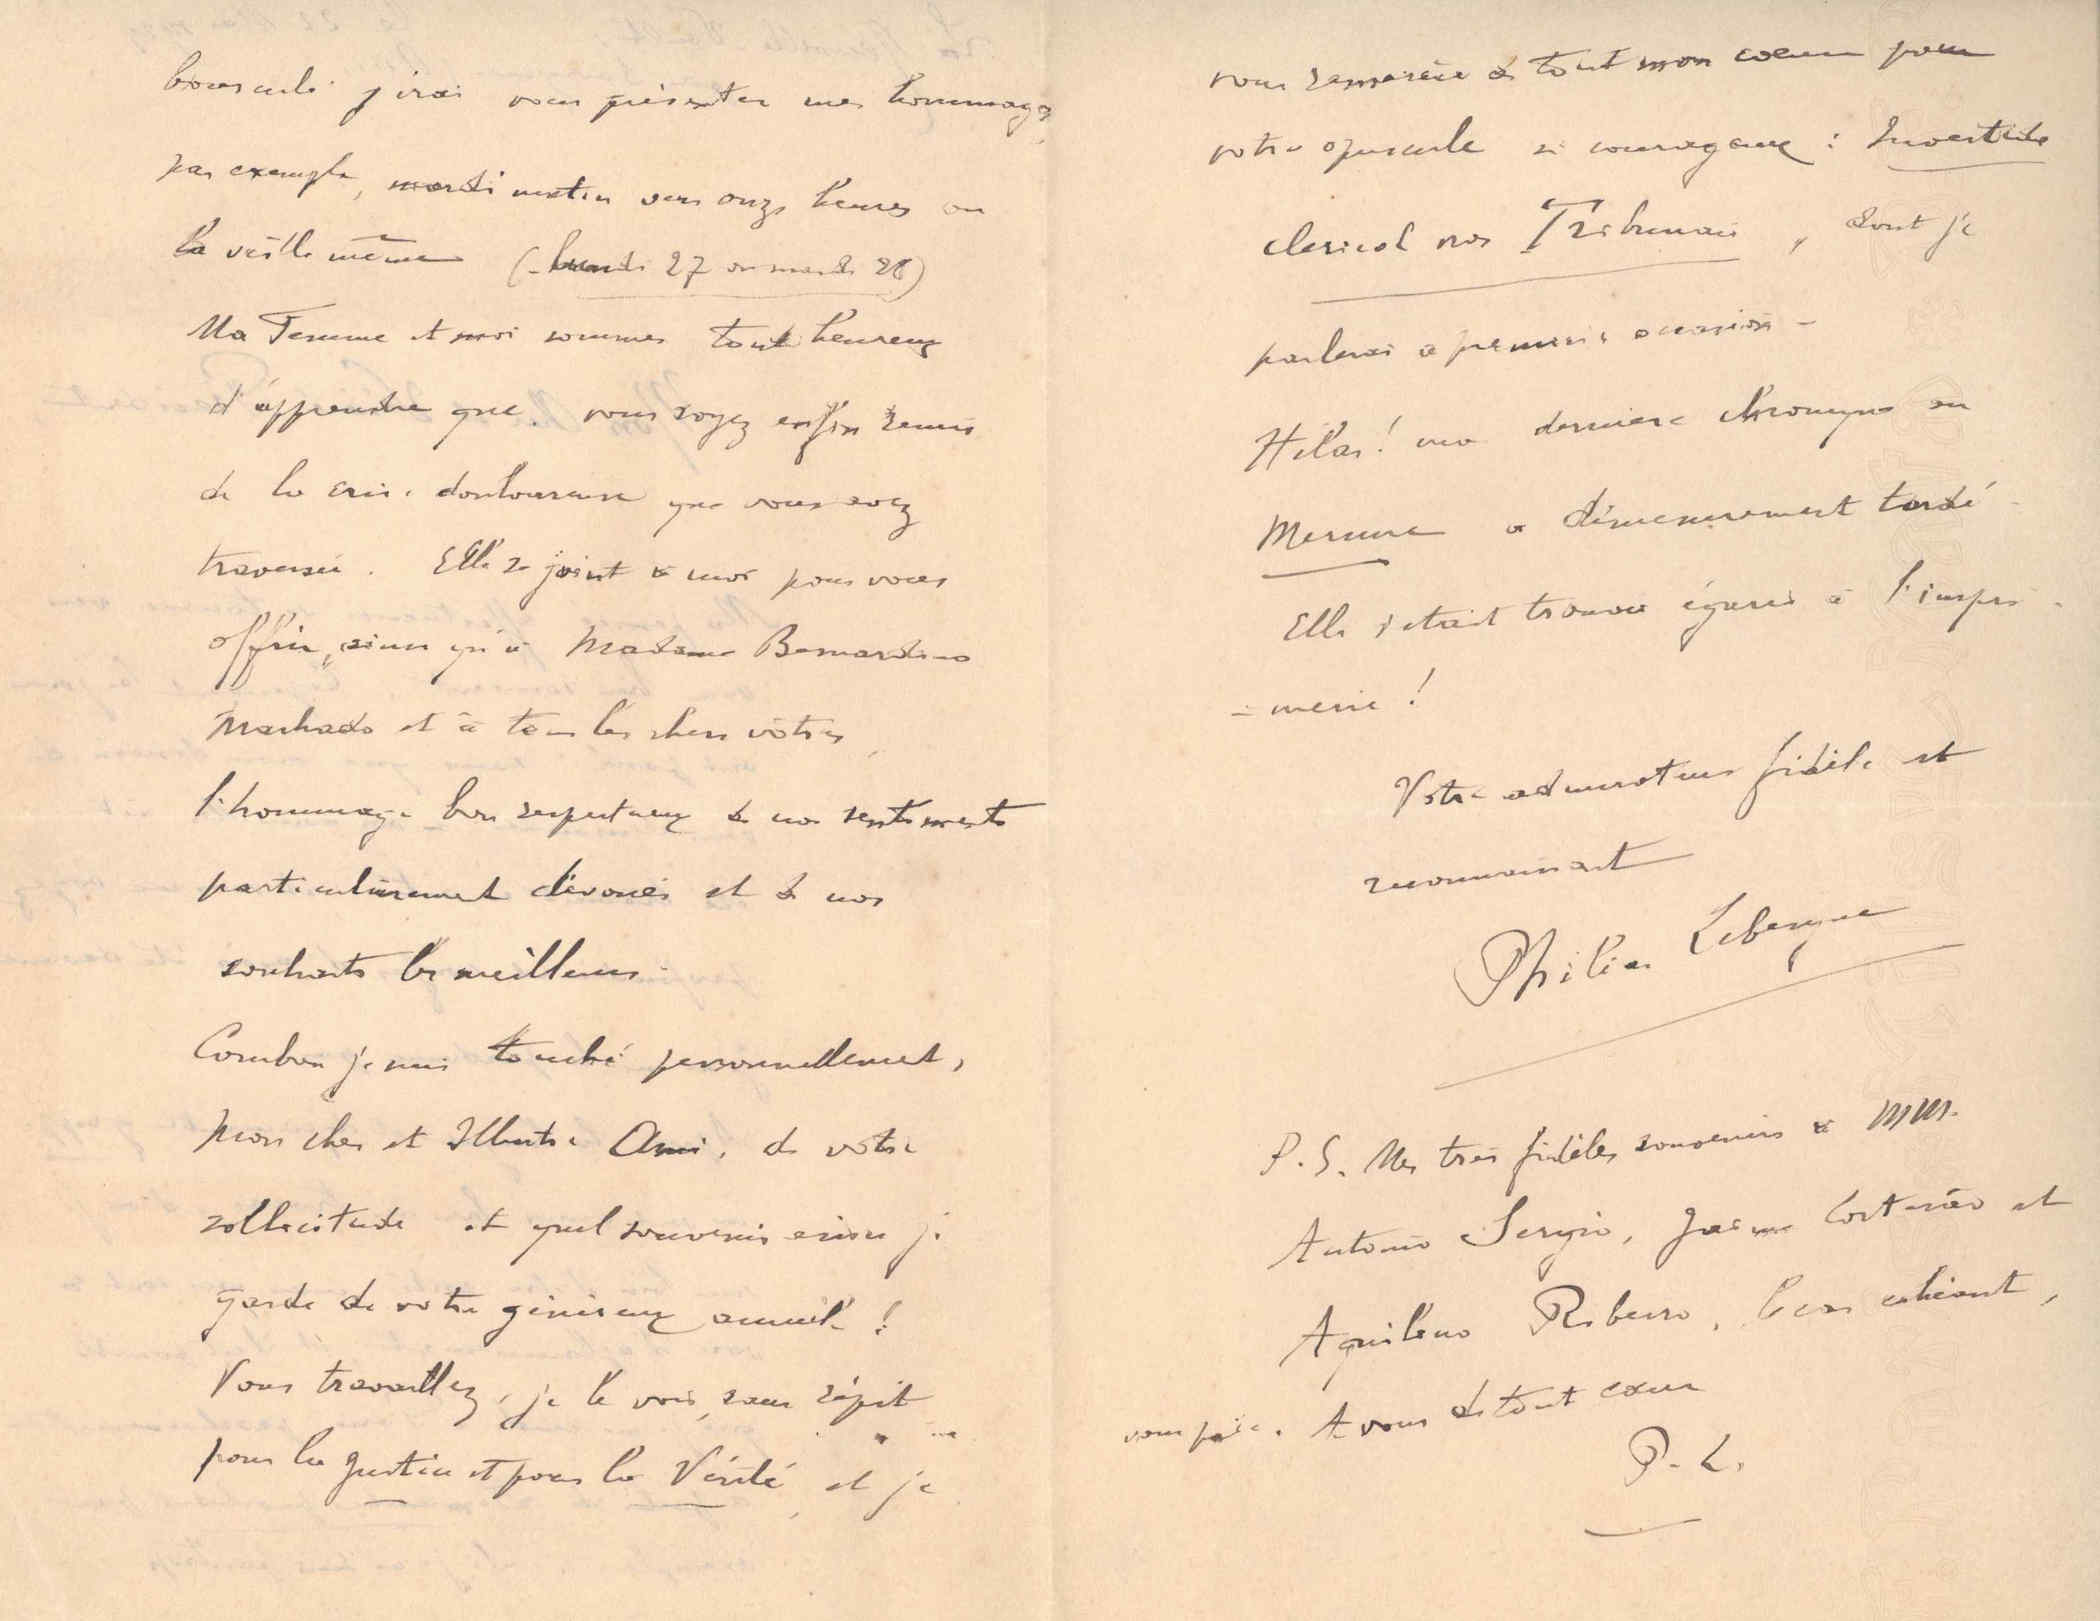 bousculé j'irai vous présenter mes hommages
par exemple, mardi matin vers onze heures ou
la veille même (lundi 27 ou mardi 28)
Ma Femme et moi sommes tout heureux
d'apprendre que vous soyez enfin remis
de la crise douloureuse que vous avez
traversée. Elle se joint à moi pour vous
offrir, ainsi qu'à Madame Bernardino
Machado et à tous les chers vôtres,
l'hommage bien respectueux de nos sentiments
particulièrement dévoués et de nos
souhaits les meilleurs.
Combien je suis touché personnellement,
mon cher et Illustre Ami, de votre
sollicitude et quel souvenir ému je
garde de votre généreux accueil !
Vous travaillez, je le vois, sans répit
pour la Justice et pour la Vérité, et je
vous remercie de tout mon coeur pour
votre opuscule si courageux :
clerical nos Tribunais, dont je
parlerai à première occasion -
Hélas ! ma dernière chronique au
Mercure a démesurement tardé -
Elle s'était trouvée égarée à l'impri-
-merie !
Votre admirateur fidèle et
reconnaissant
Philéas Lebesgue
P.S. Mes très fidèles souvenirs à MM.
Antonio Sergio, Jaime Cortesão et
Aquilino Ribeiro, le cas échéant,
vous prie. A vous de tout coeur
P. L.